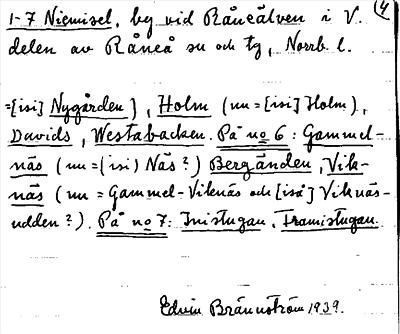 1-7 Niemisel, by vid Råneälven i V. (4
delen av Råneå sn och tg, Norrb. l.
=[isi] Nygården), Holm (nu=[isi] Holm),
Davids, Westabacken. På no 6: Gammel-
näs (nu=(isi) Näs?) Bergänden, Vik-
näs (nu = Gammel-Viknäs och [iså] Viknäs-
udden?). På no 7: Inistugan, Framistugan.
Edvin Brännström 1939.